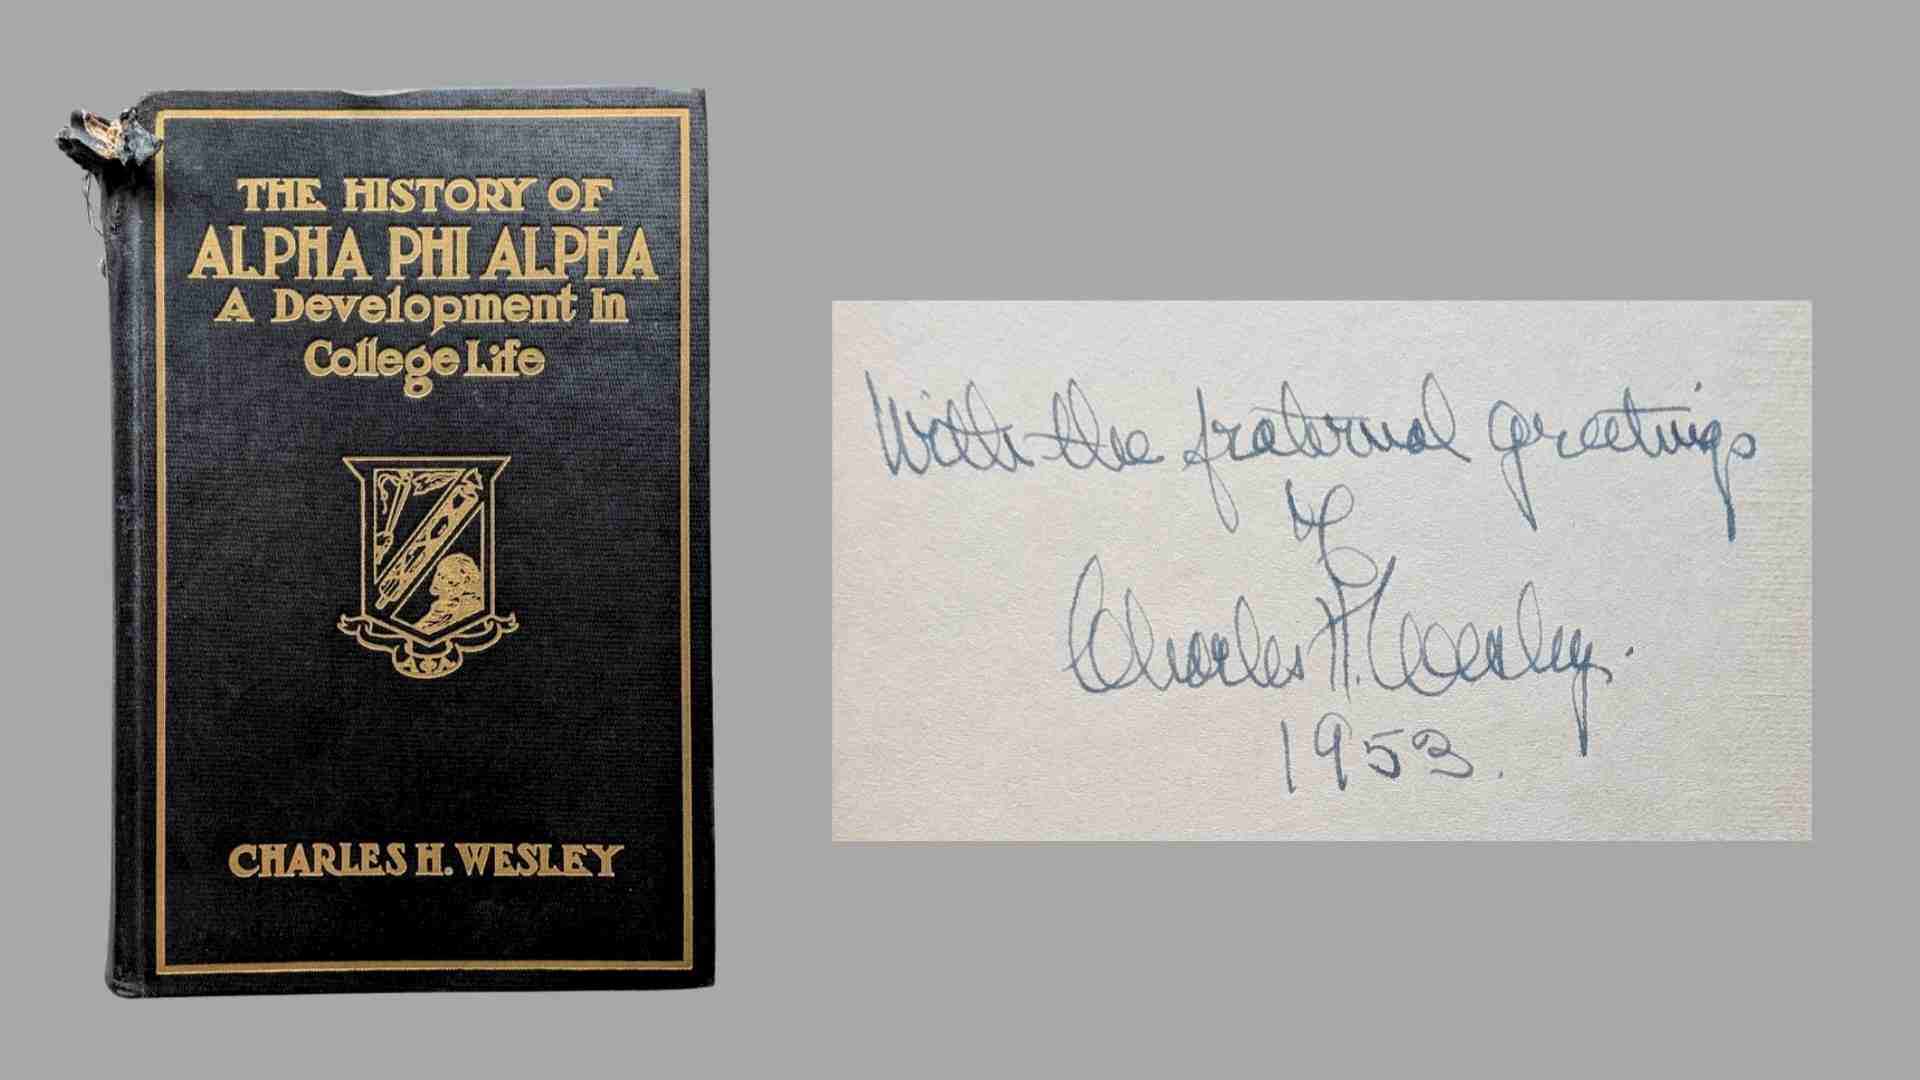 THE HISTORY OF
ALPHA PHI ALPHA
A Development In
College Life
ΑΦΑ
CHARLES H. WESLEY
With the fraternal greetings
of
Charles H. Wesley.
1953.